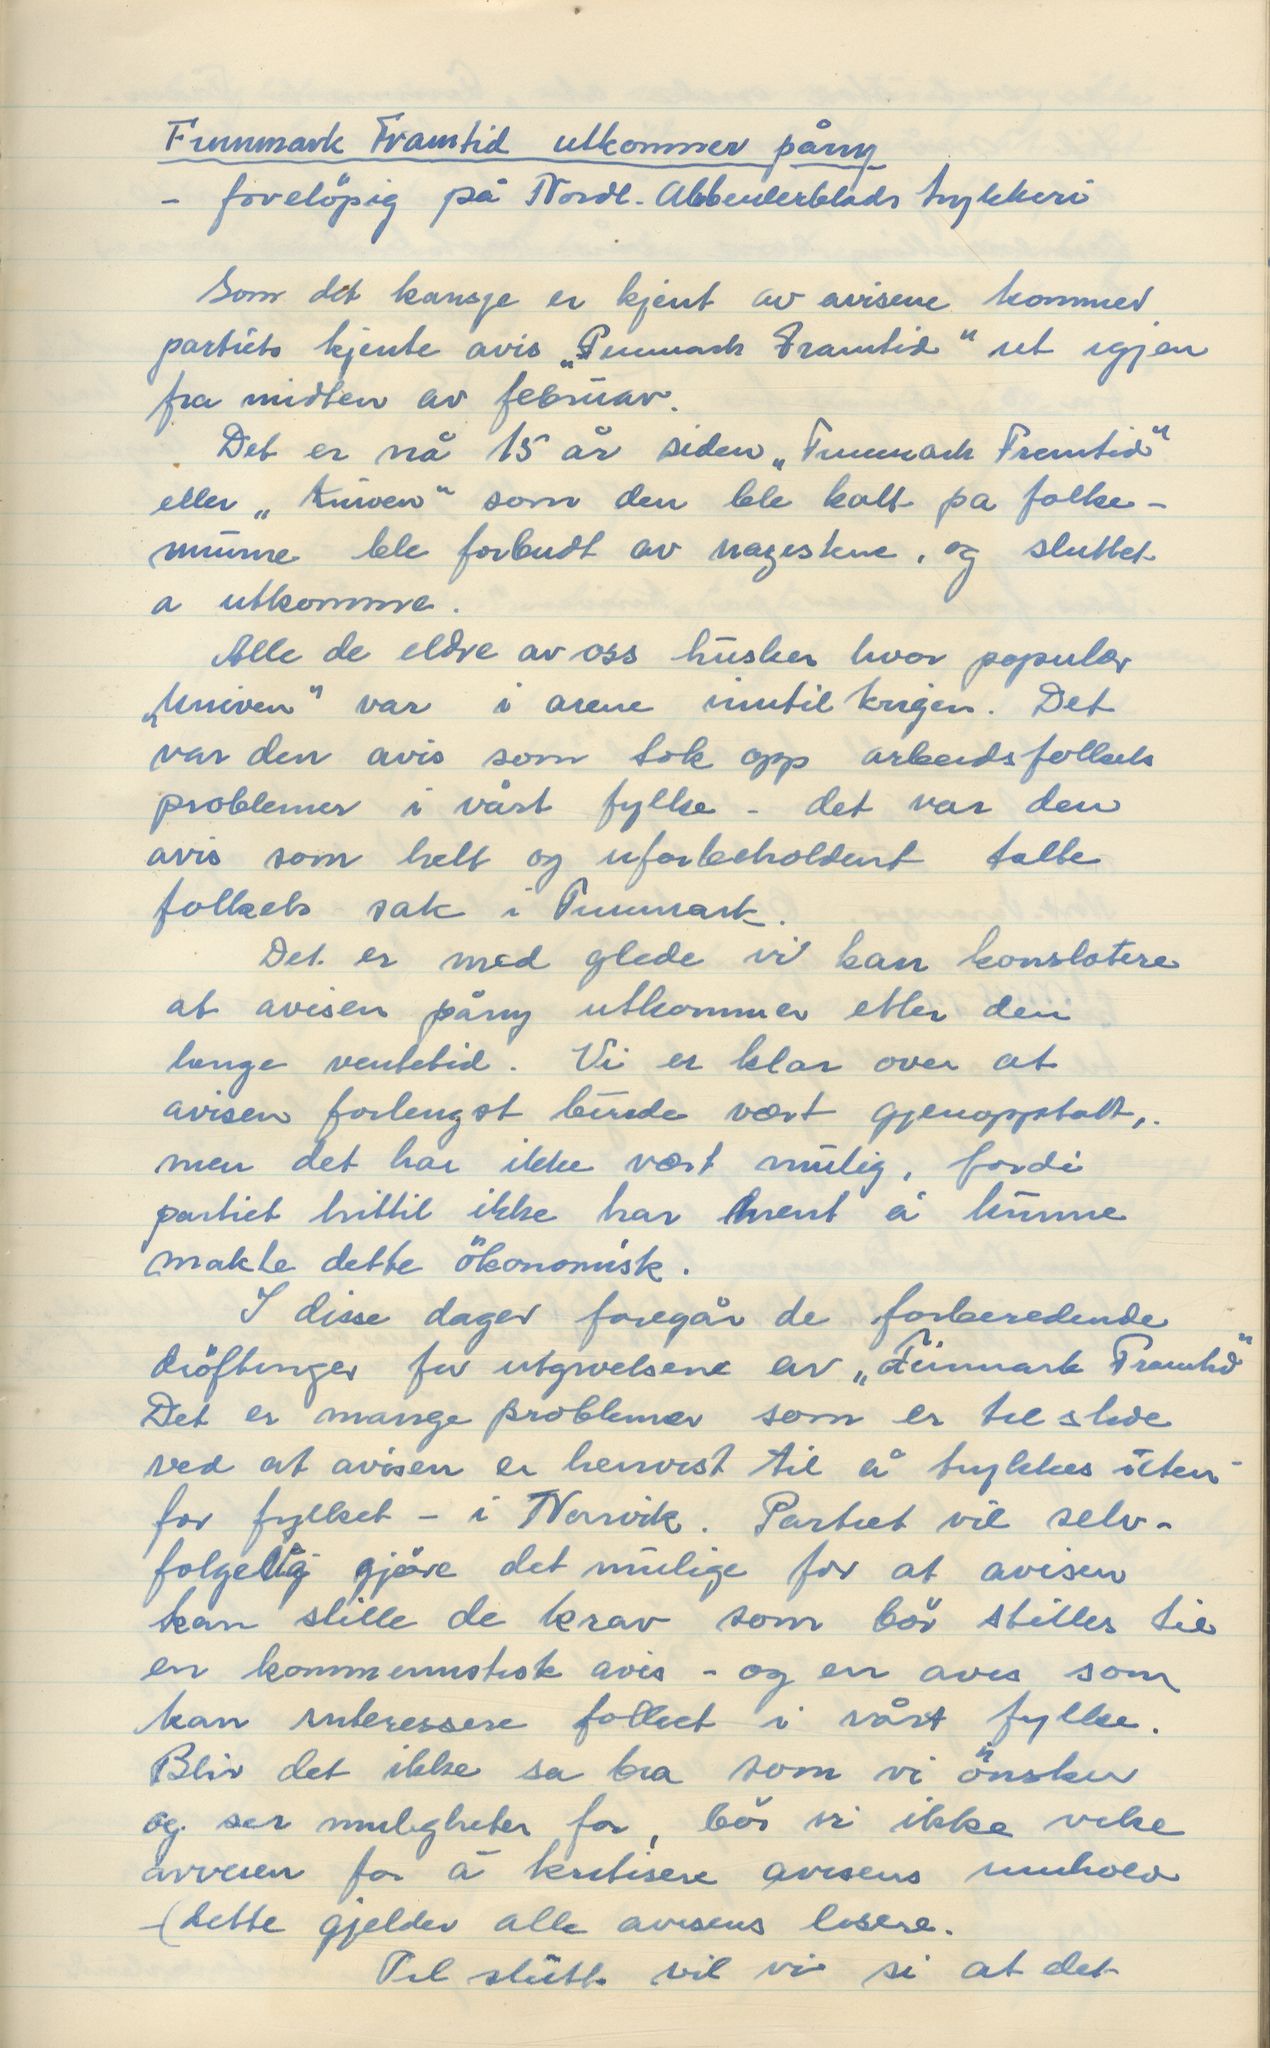 Finnmark Framtid utkommer påny
- foreløpig på Nordl. Abbeiderblads trykkeri
Som det kansje er kjent av avisene kommer
partiets kjente avis „Finnmark Framtid" ut igjen
fra midten av februar.
Det er nå 15 år siden „Finnmark Fremtid"
eller „Kniven" som den ble kalt pa folke-
munne ble forbudt av nazestene, og sluttet
a utkomme.
Alle de eldre av oss husker hvor populær
„Kniven" var i arene inntil krigen. Det
var den avis som tok opp arbeidsfolkets
problemer i vårt fylke - det var den
avis som helt og uforbeholdent talte
folkets sak i Finnmark.
Det er med glede vi kan konstatere
at avisen påny utkommer etter den
lange ventetid. Vi er klar over at
avisen forlengst burde vært gjenoppstatt,
men det har ikke vært mulig, fordi
partiet hittil ikke har ment å kunne
makte dette økonomisk.
I disse dager foregår de forberedende
drøftinger for utgivelsene av „Finnmark Framtid"
Det er mange problemer som er til stede
ved at avisen er henvist til å trykkes uten-
for fylket - i Narvik. Partiet vil selv-
folgelig gjøre det mulige for at avisen
kan stille de krav som bør stilles til
en kommunistisk avis - og en avis som
kan interessere folket i vårt fylke.
Blir det ikke sa bra som vi ønsker
og ser muligheter for, bør vi ikke vike
avveien for å kritisere avisens innhold
- (dette gjelder alle avisens lesere.
Til slutt vil vi si at det